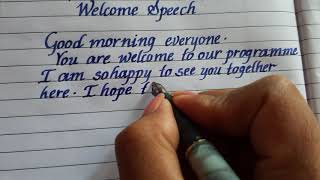 Welcome Speech
Good morning everyone.
You are welcome to our programme
I am so happy to see you together
here. I hope t